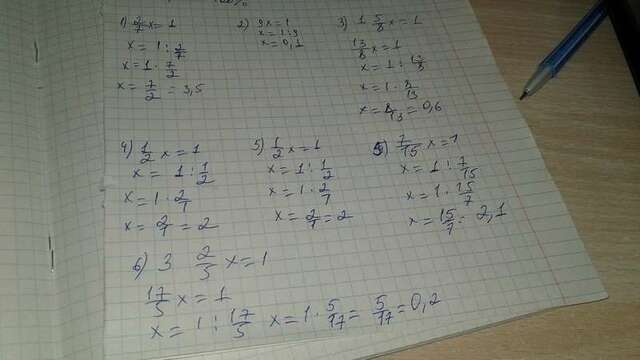 1) 2/7 x = 1
x = 1 : 2/7
x = 1 · 7/2
x = 7/2 = 3,5
2) 9x = 1
x = 1 : 9
x = 0,1
3) 1 5/8 x = 1
13/8 x = 1
x = 1 : 13/8
x = 1 · 8/13
x = 8/13 = 0,6
4) 1/2 x = 1
x = 1 : 1/2
x = 1 · 2/1
x = 2/1 = 2
5) 1/2 x = 1
x = 1 : 1/2
x = 1 · 2/1
x = 2/1 = 2
5) 7/15 x = 1
x = 1 : 7/15
x = 1 · 15/7
x = 15/7 = 2,1
6) 3 2/5 x = 1
17/5 x = 1
x = 1 : 17/5 x = 1 · 5/17 = 5/17 = 0,2